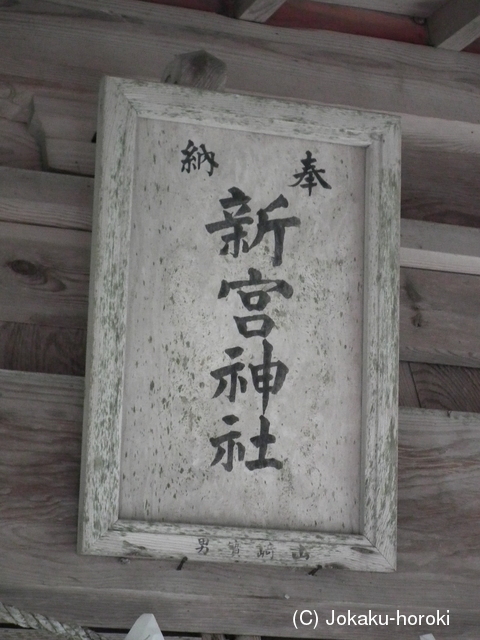 奉納
新宮神社
山崎 男
(C) Jokaku-horoki